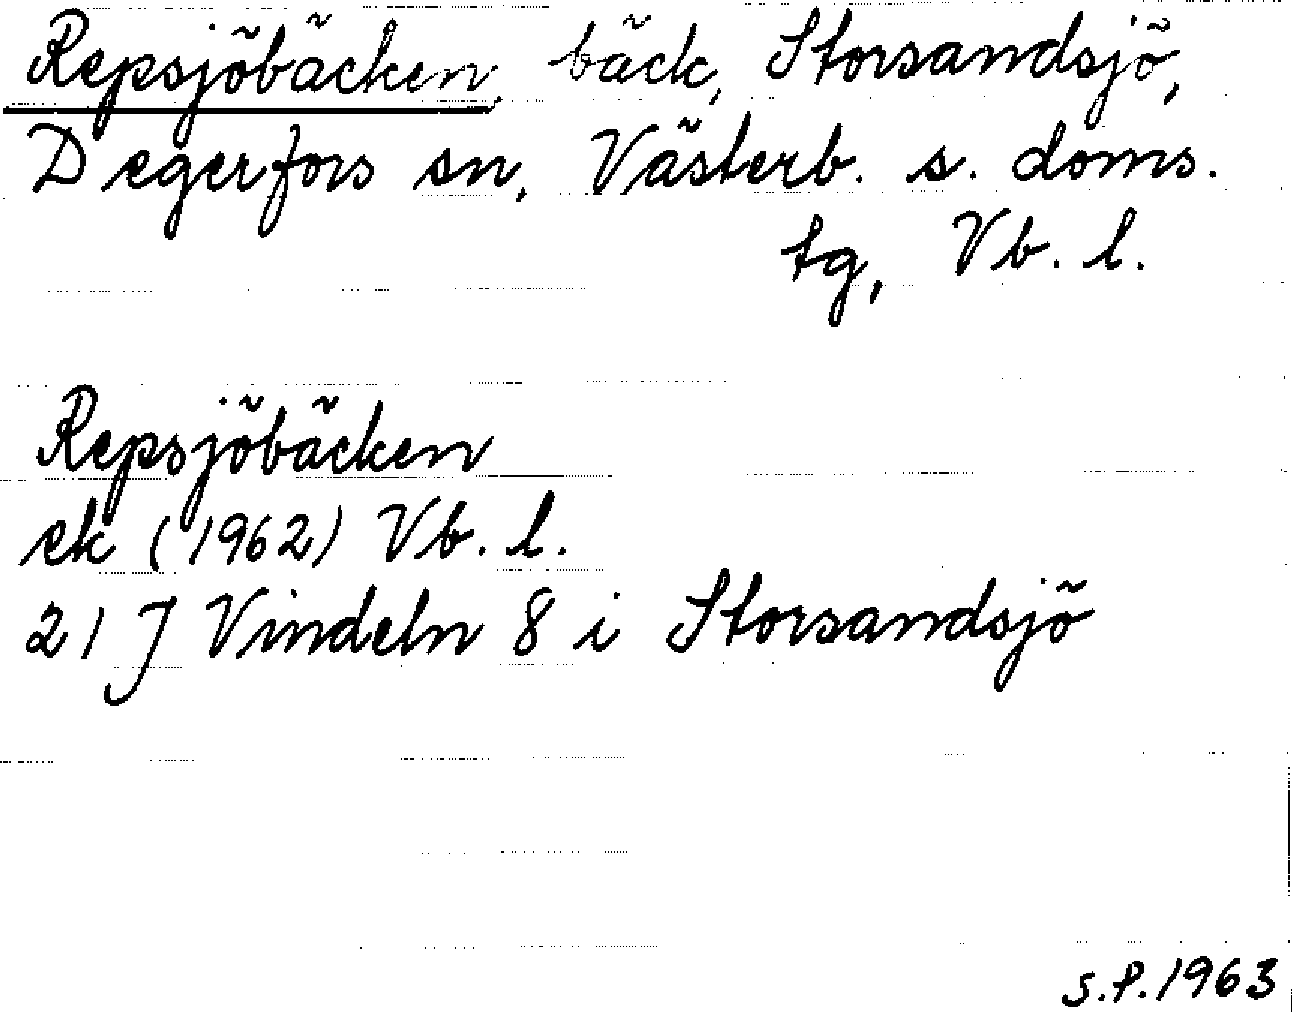 Repsjöbäcken, bäck, Storsandsjö,
Degerfors sn, Västerb. s. doms.
tg, Vb. l.
Repsjöbäcken
ek (1962) Vb. l.
21 J Vindeln 8 i Storsandsjö
S.P. 1963